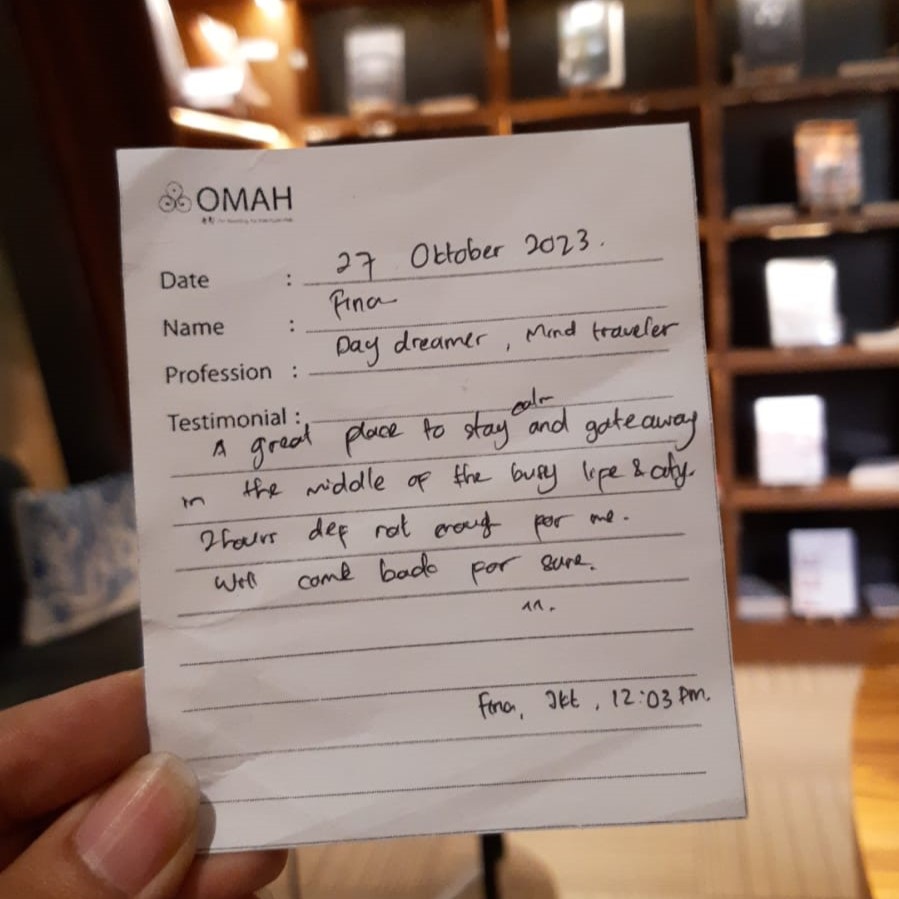 OMAH
Date : 27 Oktober 2023.
Name : Fina
Profession : Day dreamer, Mind traveler
Testimonial :
calm
A great place to stay and gateaway
in the middle of the busy life & city.
2hours def not enough for me.
Will come back for sure.
^^.
Fina, Jkt, 12:03 PM.